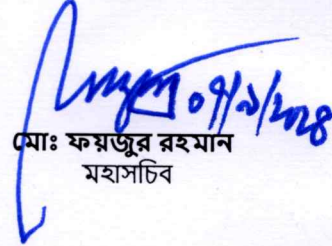 ০৭/৯/২০২৪
মোঃ ফয়জুর রহমান
মহাসচিব